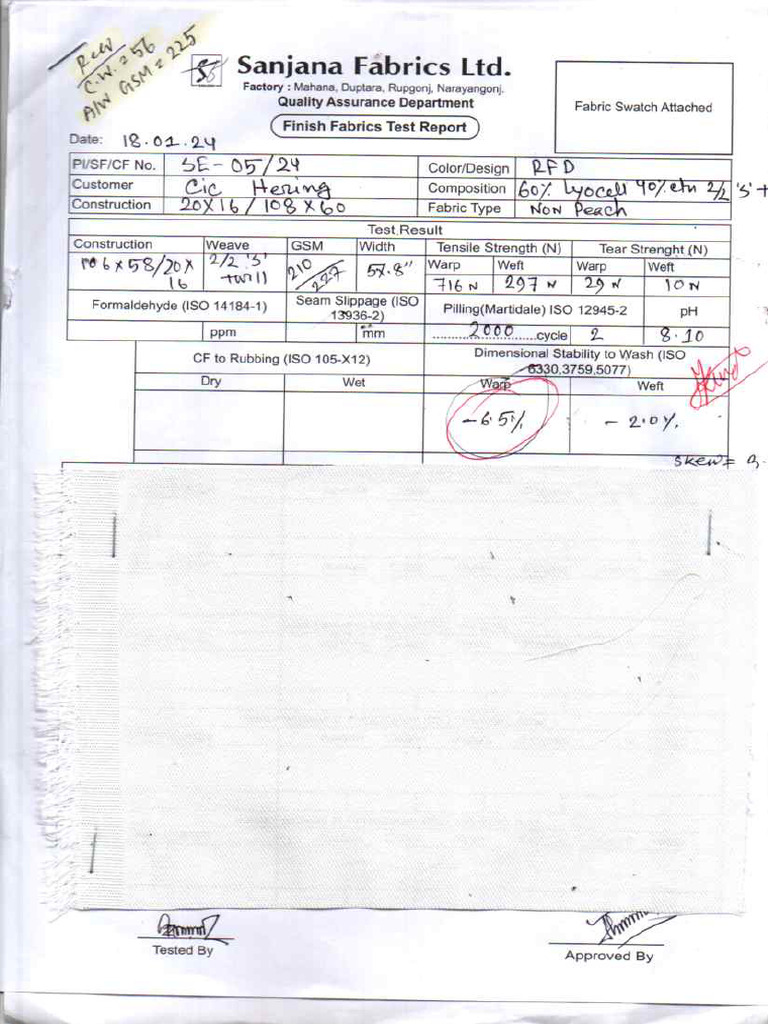 RCW
C.W. = 56
A/W GSM = 225
Sanjana Fabrics Ltd.
Factory : Mahana, Duptara, Rupgonj, Narayangonj.
Quality Assurance Department
Finish Fabrics Test Report
Fabric Swatch Attached
Date: 18.01.24
PI/SF/CF No. SE-05/24 Color/Design RFD
Customer Cic Hering Composition 60% Lyocell 40% ctn 2/2 'S' +
Construction 20X16/108X60 Fabric Type Non Peach
Test Result
Construction Weave GSM Width Tensile Strength (N) Tear Strenght (N)
Warp Weft Warp Weft
106 x 58/20 x 16 2/2 'S' twill 210 227 57.8" 716 N 297 N 29 N 10 N
Formaldehyde (ISO 14184-1) Seam Slippage (ISO 13936-2) Pilling(Martidale) ISO 12945-2 pH
ppm mm 2000 cycle 2 8.10
CF to Rubbing (ISO 105-X12) Dimensional Stability to Wash (ISO 6330,3759,5077)
Dry Wet Warp Weft
-6.5% -2.0%
Skew =
Tested By Approved By